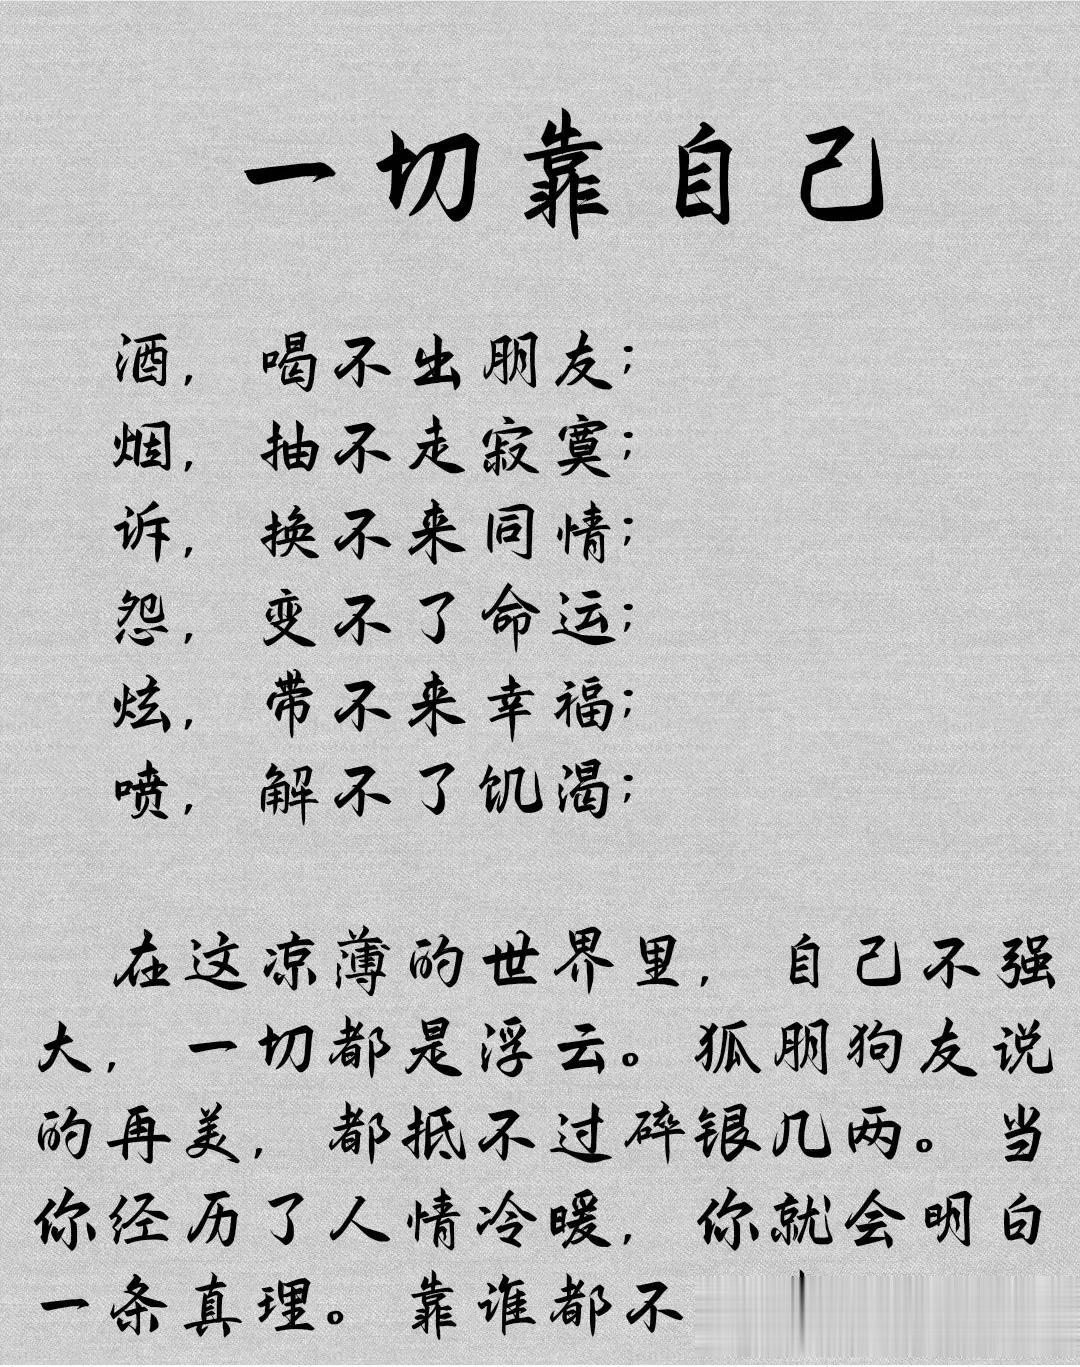 一切靠自己
酒，喝不出朋友；
烟，抽不走寂寞；
诉，换不来同情；
怨，变不了命运；
炫，带不来幸福；
喷，解不了饥渴；
在这凉薄的世界里，自己不强
大，一切都是浮云。狐朋狗友说
的再美，都抵不过碎银几两。当
你经历了人情冷暖，你就会明白
一条真理。靠谁都不